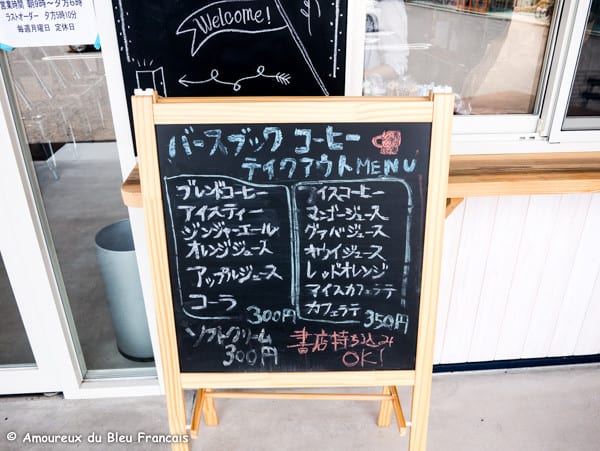 営業時間 朝9時～夕方6時
ラストオーダー 夕方5時10分
毎週月曜日 定休日
Welcome!
バースブック コーヒー
テイクアウトMENU
ブレンドコーヒー
アイスティー
ジンジャーエール
オレンジジュース
アップルジュース
コーラ
300円
アイスコーヒー
マンゴージュース
グァバジュース
キウイジュース
レッドオレンジ
アイスカフェラテ
カフェラテ
350円
ソフトクリーム
300円
書店持ち込み
OK!
© Amoureux du Bleu Francais